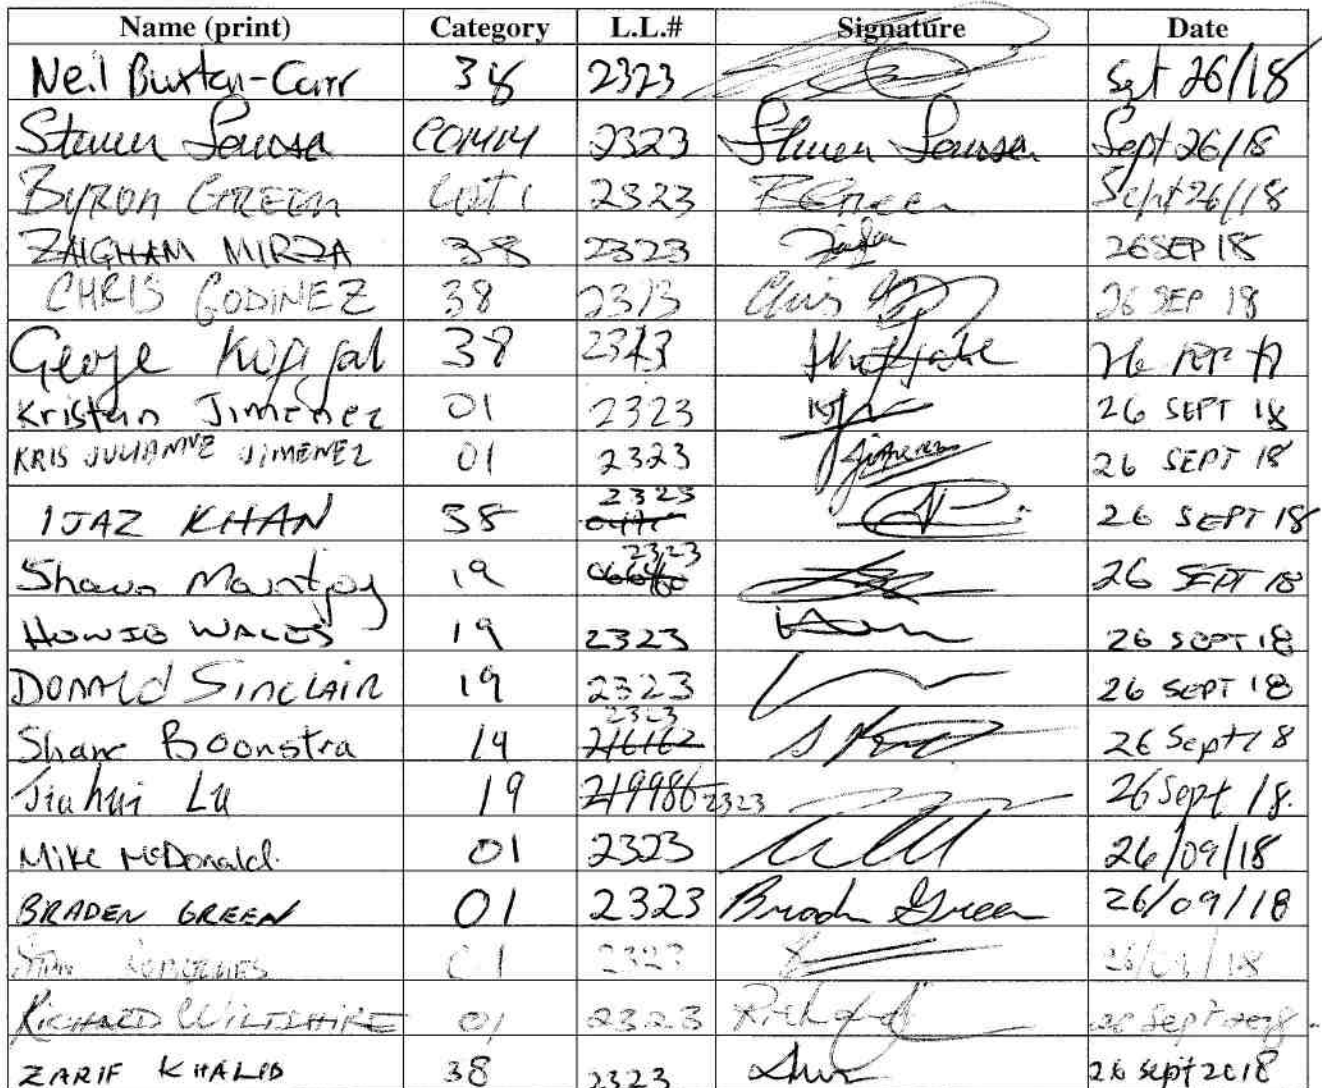 Name (print) Category L.L.# Signature Date
Neil Buxton-Carr 38 2323 Sept 26/18
Steven Sousa COMM 2323 Steven Sousa Sept 26/18
BYRON GREEN 2323 BGreen Sept 26/18
ZAIGHAM MIRZA 38 2323 26 SEP 18
CHRIS GODINEZ 38 2323 Chris 26 SEP 18
George 38 2323 26 SEP
Kristian Jimenez 01 2323 26 SEPT 18
KRIS JULIANNE JIMENEZ 01 2323 Jimenez 26 SEPT 18
IJAZ KHAN 38 2323 26 SEPT 18
Shawn Mountjoy 19 2323 26 SEPT 18
HOWIE WALES 19 2323 26 SEPT 18
DONALD SINCLAIR 19 2323 26 SEPT 18
Shane Boonstra 19 216162 2323 26 Sept 18
Jiahui Lu 19 219986 2323 26 Sept 18.
Mike McDonald 01 2323 26/09/18
BRADEN GREEN 01 2323 Braden Green 26/09/18
01 2323 26/09/18
RICHARD WILTSHIRE 01 2323 Richard 26 Sept 2018
ZARIF KHALID 38 2323 26 Sept 2018